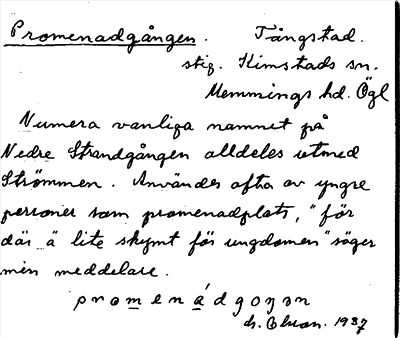 Promenadgången. Tångstad.
stig. Kimstads sn.
Memmings hd. Ögl
Numera vanliga namnet på
Nedre Strandgången alldeles utmed
Strömmen. Användes ofta av yngre
personer som promenadplats, "för
där ä lite skymt för ungdomen" säger
min meddelare.
promenádgoŋən
1937